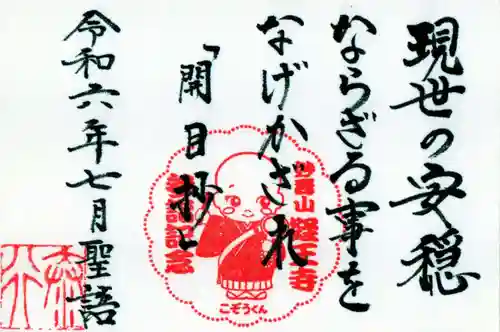 現世の安穏
ならざる事を
なげかざれ
「開目抄」
令和六年七月聖語
経王寺
参詣記念
こぞうくん